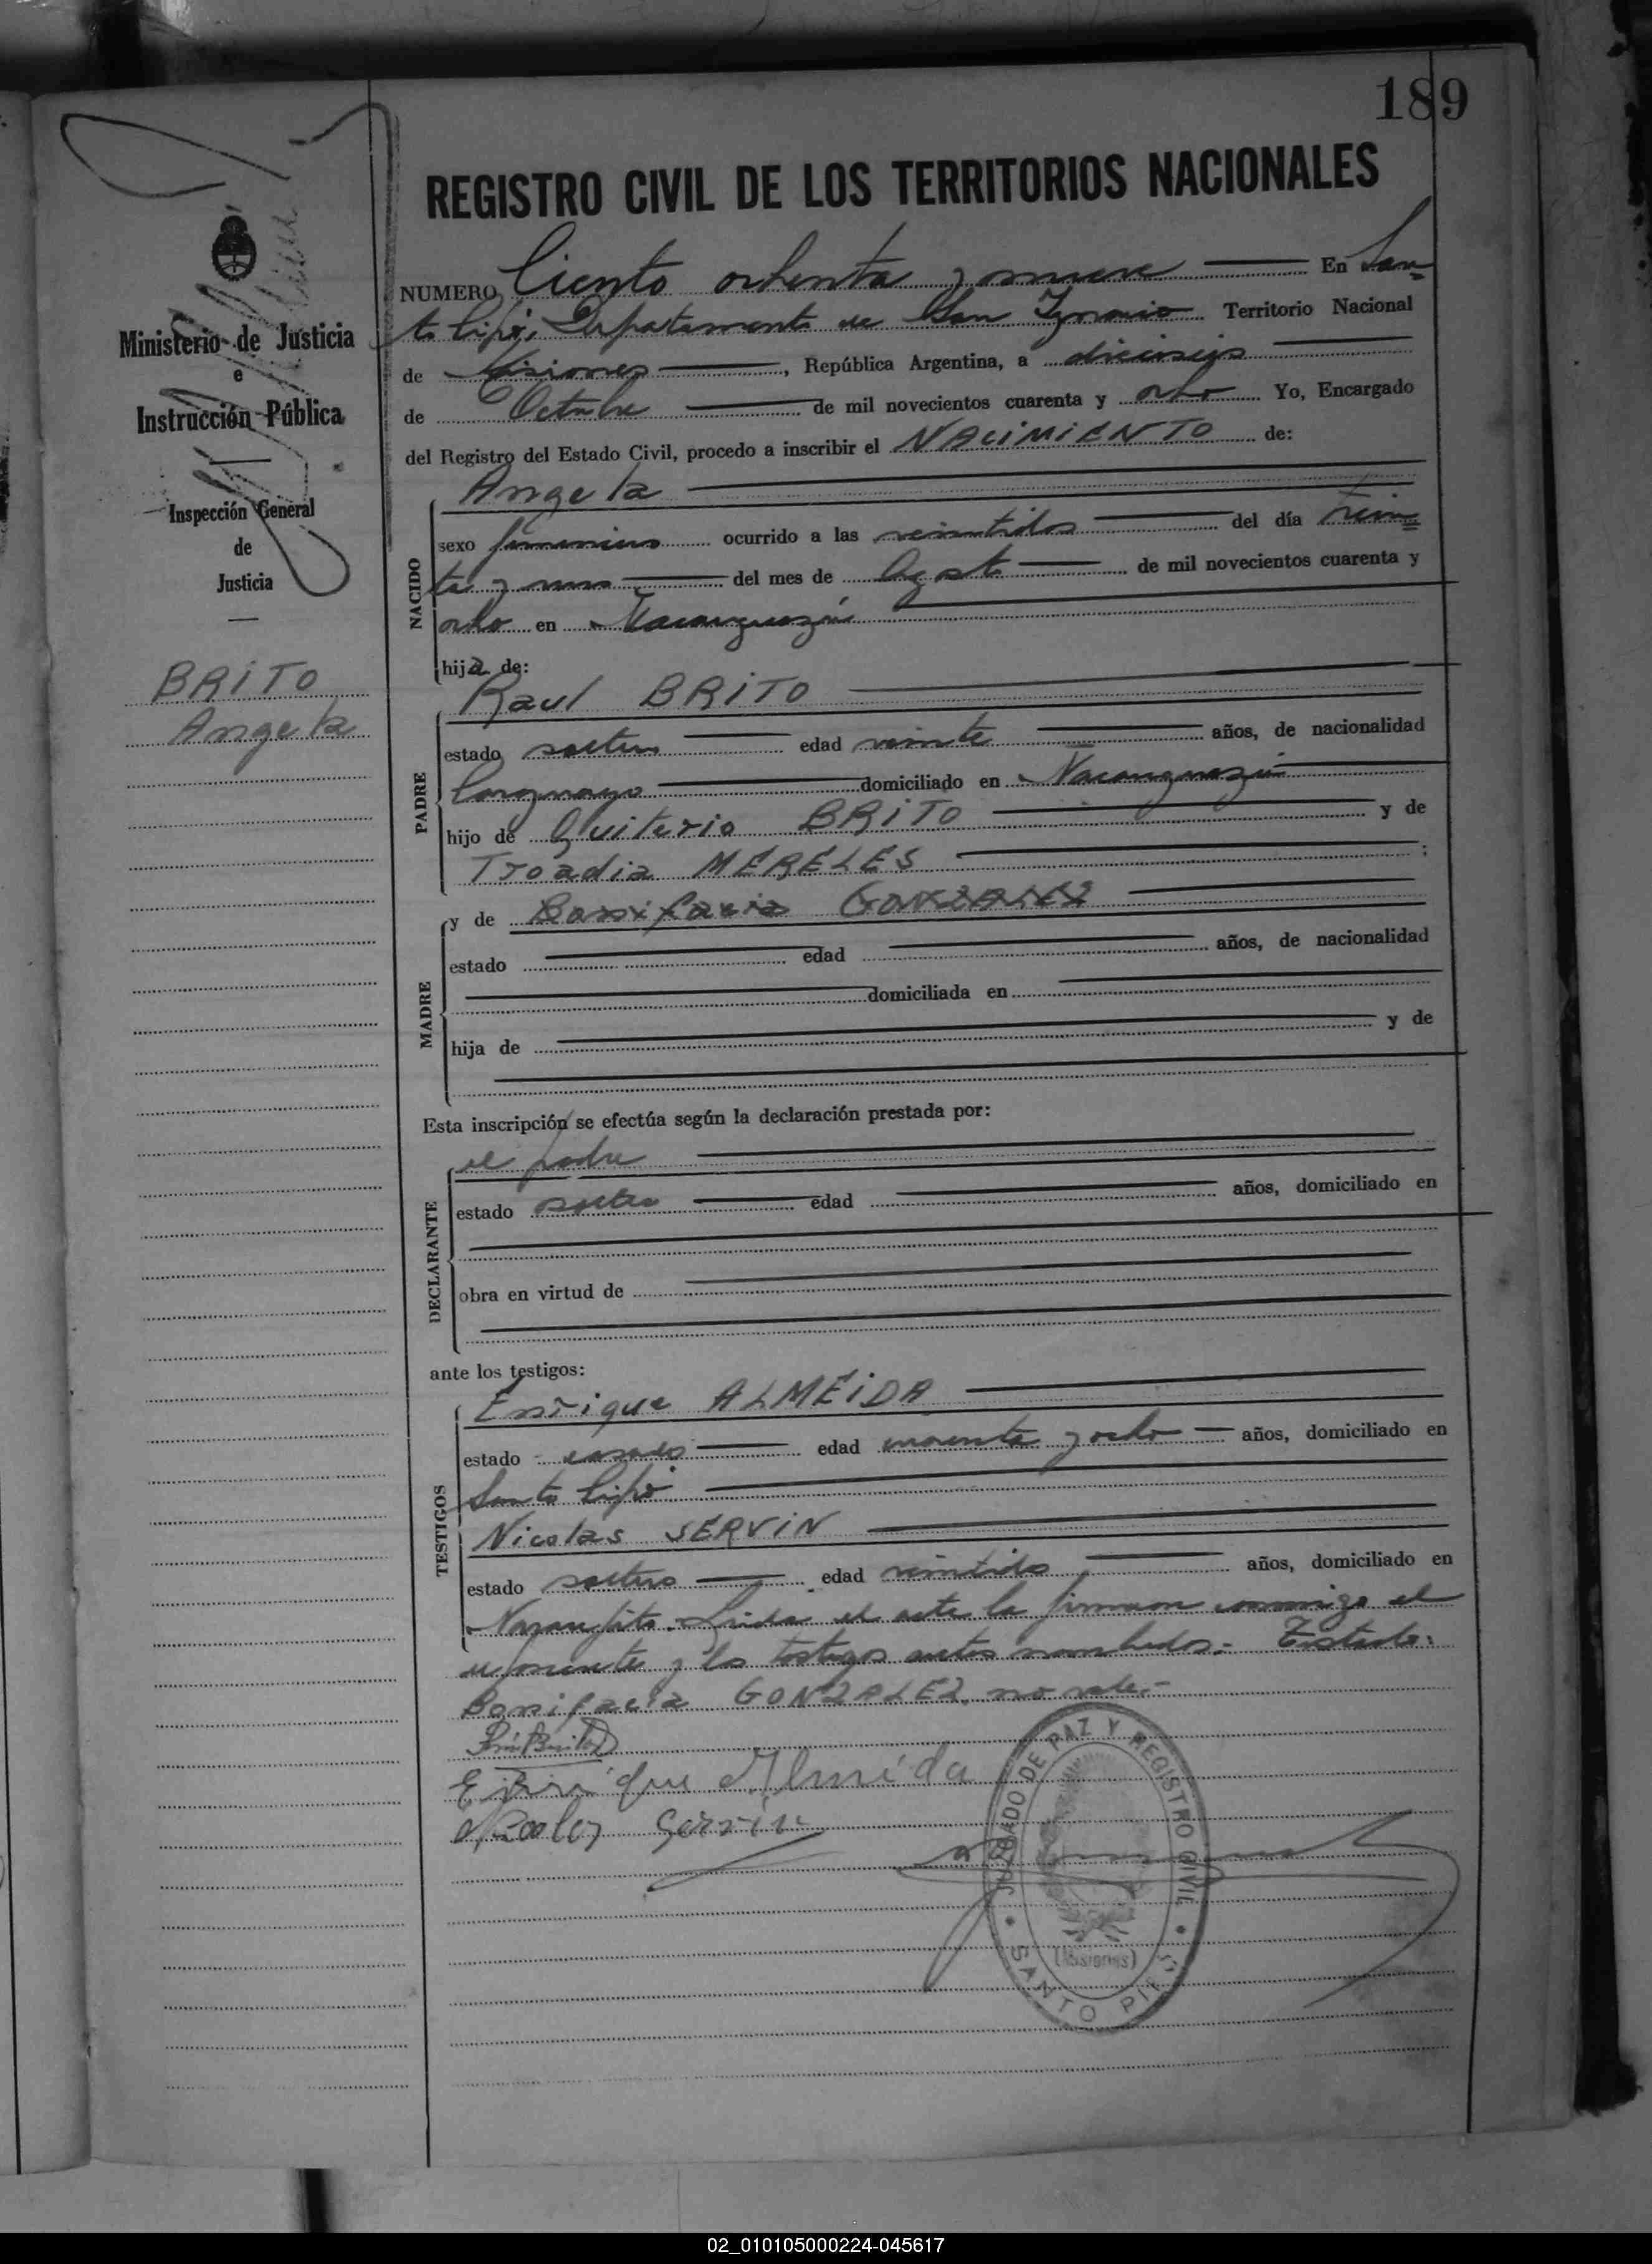 189
REGISTRO CIVIL DE LOS TERRITORIOS NACIONALES
Ministerio de Justicia
e
Instrucción Pública
Inspección General
de
Justicia
BRITO
Angela
NUMERO Ciento ochenta y nueve En San=
to Pipó, Departamento de San Ignacio Territorio Nacional
de Misiones, República Argentina, a dieciseis
de Octubre de mil novecientos cuarenta y ocho Yo, Encargado
del Registro del Estado Civil, procedo a inscribir el NACIMIENTO de:
NACIDO
Angela
sexo femenino ocurrido a las veintidos del día trein=
ta y uno del mes de Agosto de mil novecientos cuarenta y
ocho en Ñacanguazú
hija de:
PADRE
Raul BRITO
estado soltero edad veinte años, de nacionalidad
Paraguayo domiciliado en Ñacanguazú
hijo de Quiterio BRITO y de
Troadia MERELES ;
MADRE
y de Bonifacia GONZALEZ
estado edad años, de nacionalidad
domiciliada en
hija de y de
Esta inscripción se efectúa según la declaración prestada por:
DECLARANTE
el padre
estado soltero edad años, domiciliado en
obra en virtud de
ante los testigos:
TESTIGOS
Enrique ALMEIDA
estado casado edad cuarenta y ocho años, domiciliado en
Santo Pipó
Nicolas SERVIN
estado soltero edad veintidos años, domiciliado en
Naranjito. Leida el acta la firman conmigo el
exponente y los testigos antes nombrados.- Testado:
Bonifacia GONZALEZ, no vale.-
Enrique Almeida
Nicolas Servin
JUZGADO DE PAZ Y REGISTRO CIVIL
(Misiones)
SANTO PIPÓ
02_010105000224-045617